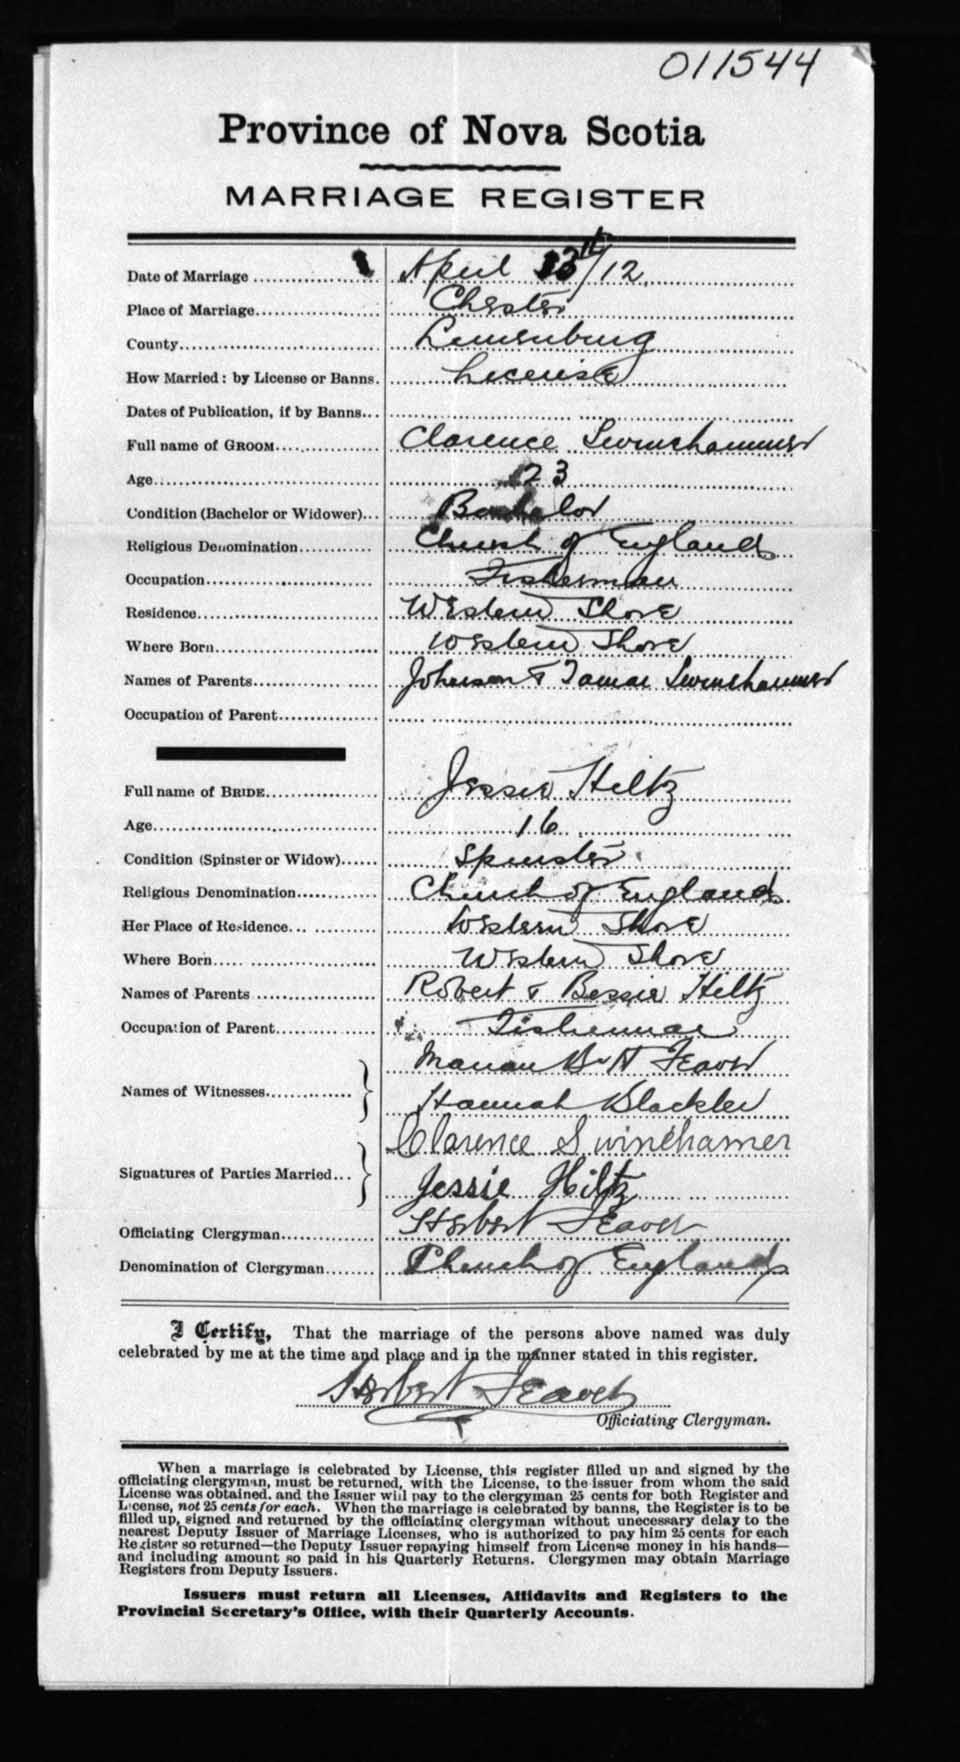 011544
Province of Nova Scotia
MARRIAGE REGISTER
Date of Marriage April 13th/12
Place of Marriage Chester
County Lunenburg
How Married: by License or Banns. License
Dates of Publication, if by Banns
Full name of GROOM Clarence Swinehammer
Age 23
Condition (Bachelor or Widower) Bachelor
Religious Denomination Church of England
Occupation Fisherman
Residence Western Shore
Where Born Western Shore
Names of Parents Johnson & Tamar Swinehammer
Occupation of Parent
Full name of BRIDE Jessie Hiltz
Age 16
Condition (Spinster or Widow) Spinster
Religious Denomination Church of England
Her Place of Residence Western Shore
Where Born Western Shore
Names of Parents Robert & Bessie Hiltz
Occupation of Parent Fisherman
Marian B. N Feaver
Names of Witnesses
Hannah Blackler
Clarence Swinehamer
Signatures of Parties Married
Jessie Hiltz
Officiating Clergyman Herbert Feaver
Denomination of Clergyman Church of England
I Certify, That the marriage of the persons above named was duly
celebrated by me at the time and place and in the manner stated in this register.
Herbert Feaver
Officiating Clergyman.
When a marriage is celebrated by License, this register filled up and signed by the
officiating clergyman, must be returned, with the License, to the issuer from whom the said
License was obtained, and the Issuer will pay to the clergyman 25 cents for both Register and
License, not 25 cents for each. When the marriage is celebrated by banns, the Register is to be
filled up, signed and returned by the officiating clergyman without unecessary delay to the
nearest Deputy Issuer of Marriage Licenses, who is authorized to pay him 25 cents for each
Register so returned—the Deputy Issuer repaying himself from License money in his hands—
and including amount so paid in his Quarterly Returns. Clergymen may obtain Marriage
Registers from Deputy Issuers.
Issuers must return all Licenses, Affidavits and Registers to the
Provincial Secretary's Office, with their Quarterly Accounts.